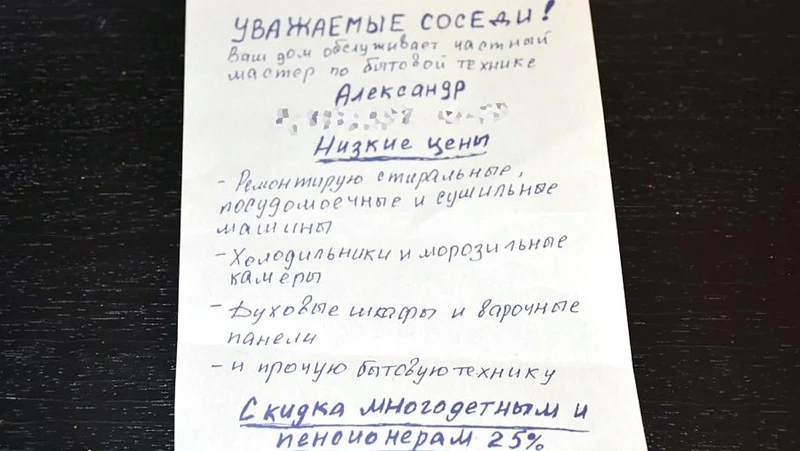 УВАЖАЕМЫЕ СОСЕДИ!
Ваш дом обслуживает частный
мастер по бытовой технике
Александр
Низкие цены
- Ремонтирую стиральные,
посудомоечные и сушильные
машины
- Холодильники и морозильные
камеры
- Духовые шкафы и варочные
панели
- и прочую бытовую технику
Скидка многодетным и
пенсионерам 25%